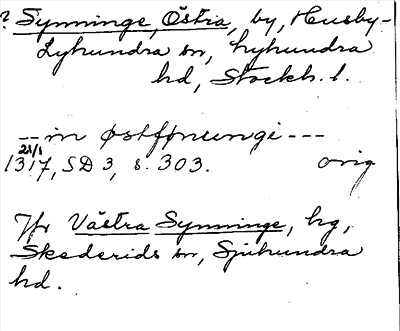 ? Synninge, Östra, by, Husby-
Lyhundra sn, Lyhundra
hd, Stockh. l.
-- in østfønungi ---
21/1
1317, SD 3, s. 303. orig
Jfr Västra Synninge, hg,
Skederids sn, Sjuhundra
hd.